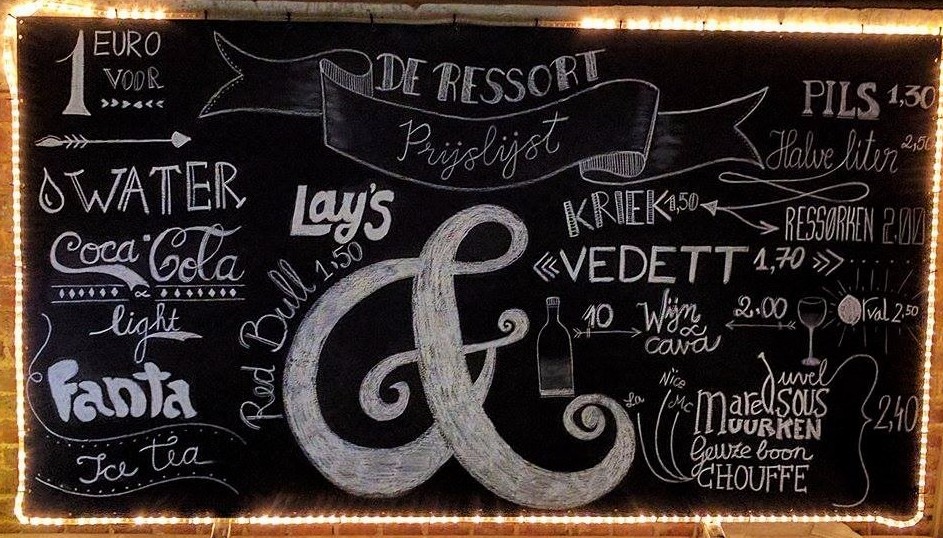 1 EURO
VOOR
WATER
Coca-Cola
&
light
Fanta
Ice tea
DE RESSORT
Prijslijst
Lay's
Red Bull 1.50
&
PILS 1,30
Halve liter 2,50
KRIEK 1,50
RESSØRKEN 2.00
VEDETT 1,70
10 Wijn & cava 2.00
Orval 2.50
Duvel
Maredsous
MUURKEN
Geuze boon
CHOUFFE
2,40